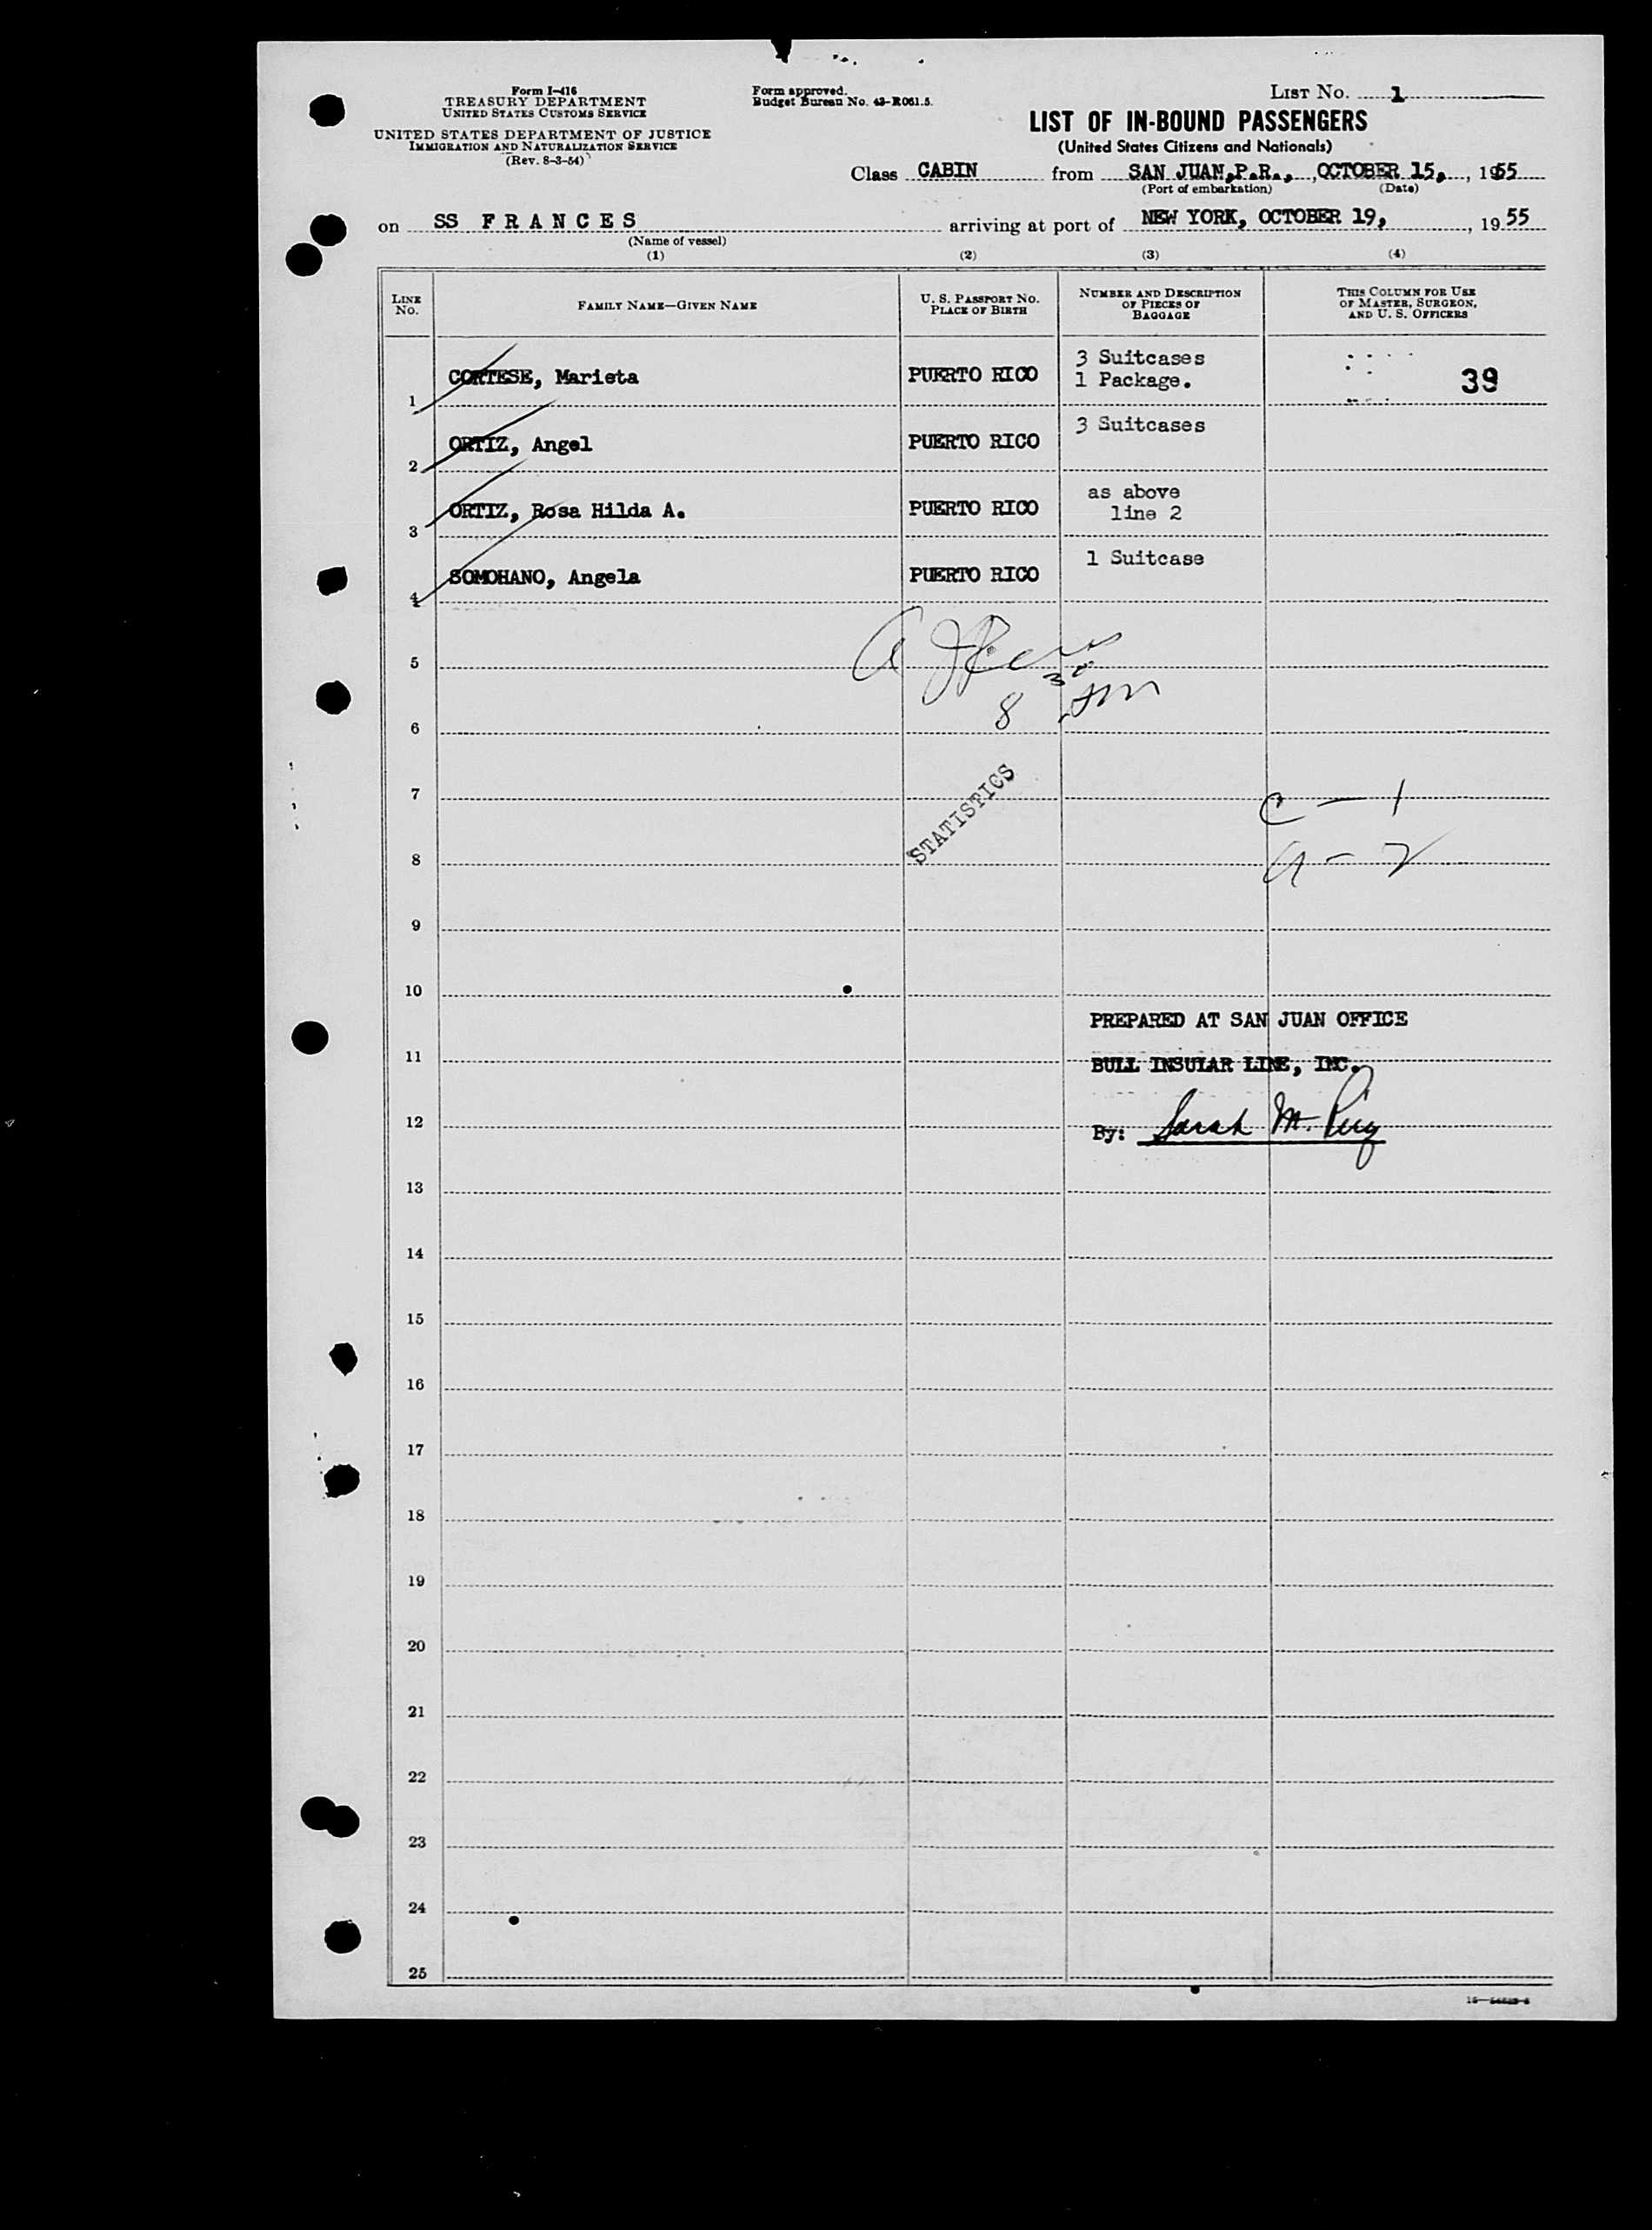 Form I-416
TREASURY DEPARTMENT
UNITED STATES CUSTOMS SERVICE
UNITED STATES DEPARTMENT OF JUSTICE
IMMIGRATION AND NATURALIZATION SERVICE
(Rev. 8-3-54)
Form approved.
Budget Bureau No. 43-R061.5.
LIST NO. 1
LIST OF IN-BOUND PASSENGERS
(United States Citizens and Nationals)
Class CABIN from SAN JUAN,P.R., , OCTOBER 15, , 1955
(Port of embarkation) (Date)
on SS FRANCES arriving at port of NEW YORK, OCTOBER 19, , 19 55
(Name of vessel)
(1) (2) (3) (4)
LINE NO. FAMILY NAME—GIVEN NAME U. S. PASSPORT NO. PLACE OF BIRTH NUMBER AND DESCRIPTION OF PIECES OF BAGGAGE THIS COLUMN FOR USE OF MASTER, SURGEON, AND U. S. OFFICERS
1 CORTESE, Marieta PUERTO RICO 3 Suitcases 1 Package. 39
2 ORTIZ, Angel PUERTO RICO 3 Suitcases
3 ORTIZ, Rosa Hilda A. PUERTO RICO as above line 2
4 SOMOHANO, Angela PUERTO RICO 1 Suitcase
5
6 8
7 STATISTICS C - 1
8 a - 2
9
10
PREPARED AT SAN JUAN OFFICE
11 BULL INSULAR LINE, INC.
12 By: Sarah M. Puig
13
14
15
16
17
18
19
20
21
22
23
24
25